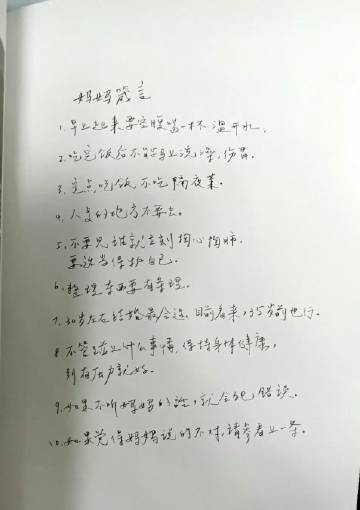 妈妈箴言
1.早上起来要空腹喝一杯温开水。
2.吃完饭后不能马上洗澡,伤胃。
3.定点吃饭,不吃隔夜菜。
4.人多的地方不要去。
5.不要见谁就立刻掏心掏肺,
要适当保护自己。
6.整理东西要有条理。
7.30岁左右结婚最合适,目前看来,35岁前也行。
8.不管遇上什么事情,保持身体健康,
别有压力就好。
9.如果不听妈妈的话,就会犯错误。
10.如果觉得妈妈说的不对,请参看上一条。